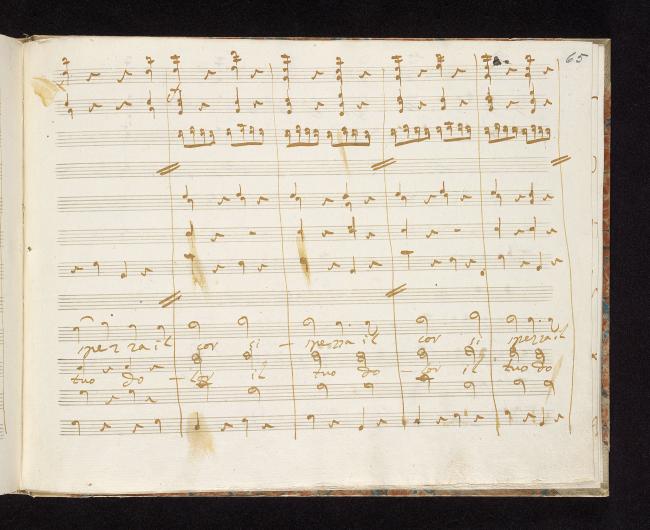 65
spezza il cor si — spezza il cor si spezza il
tuo do — lor il tuo do — lor il tuo do